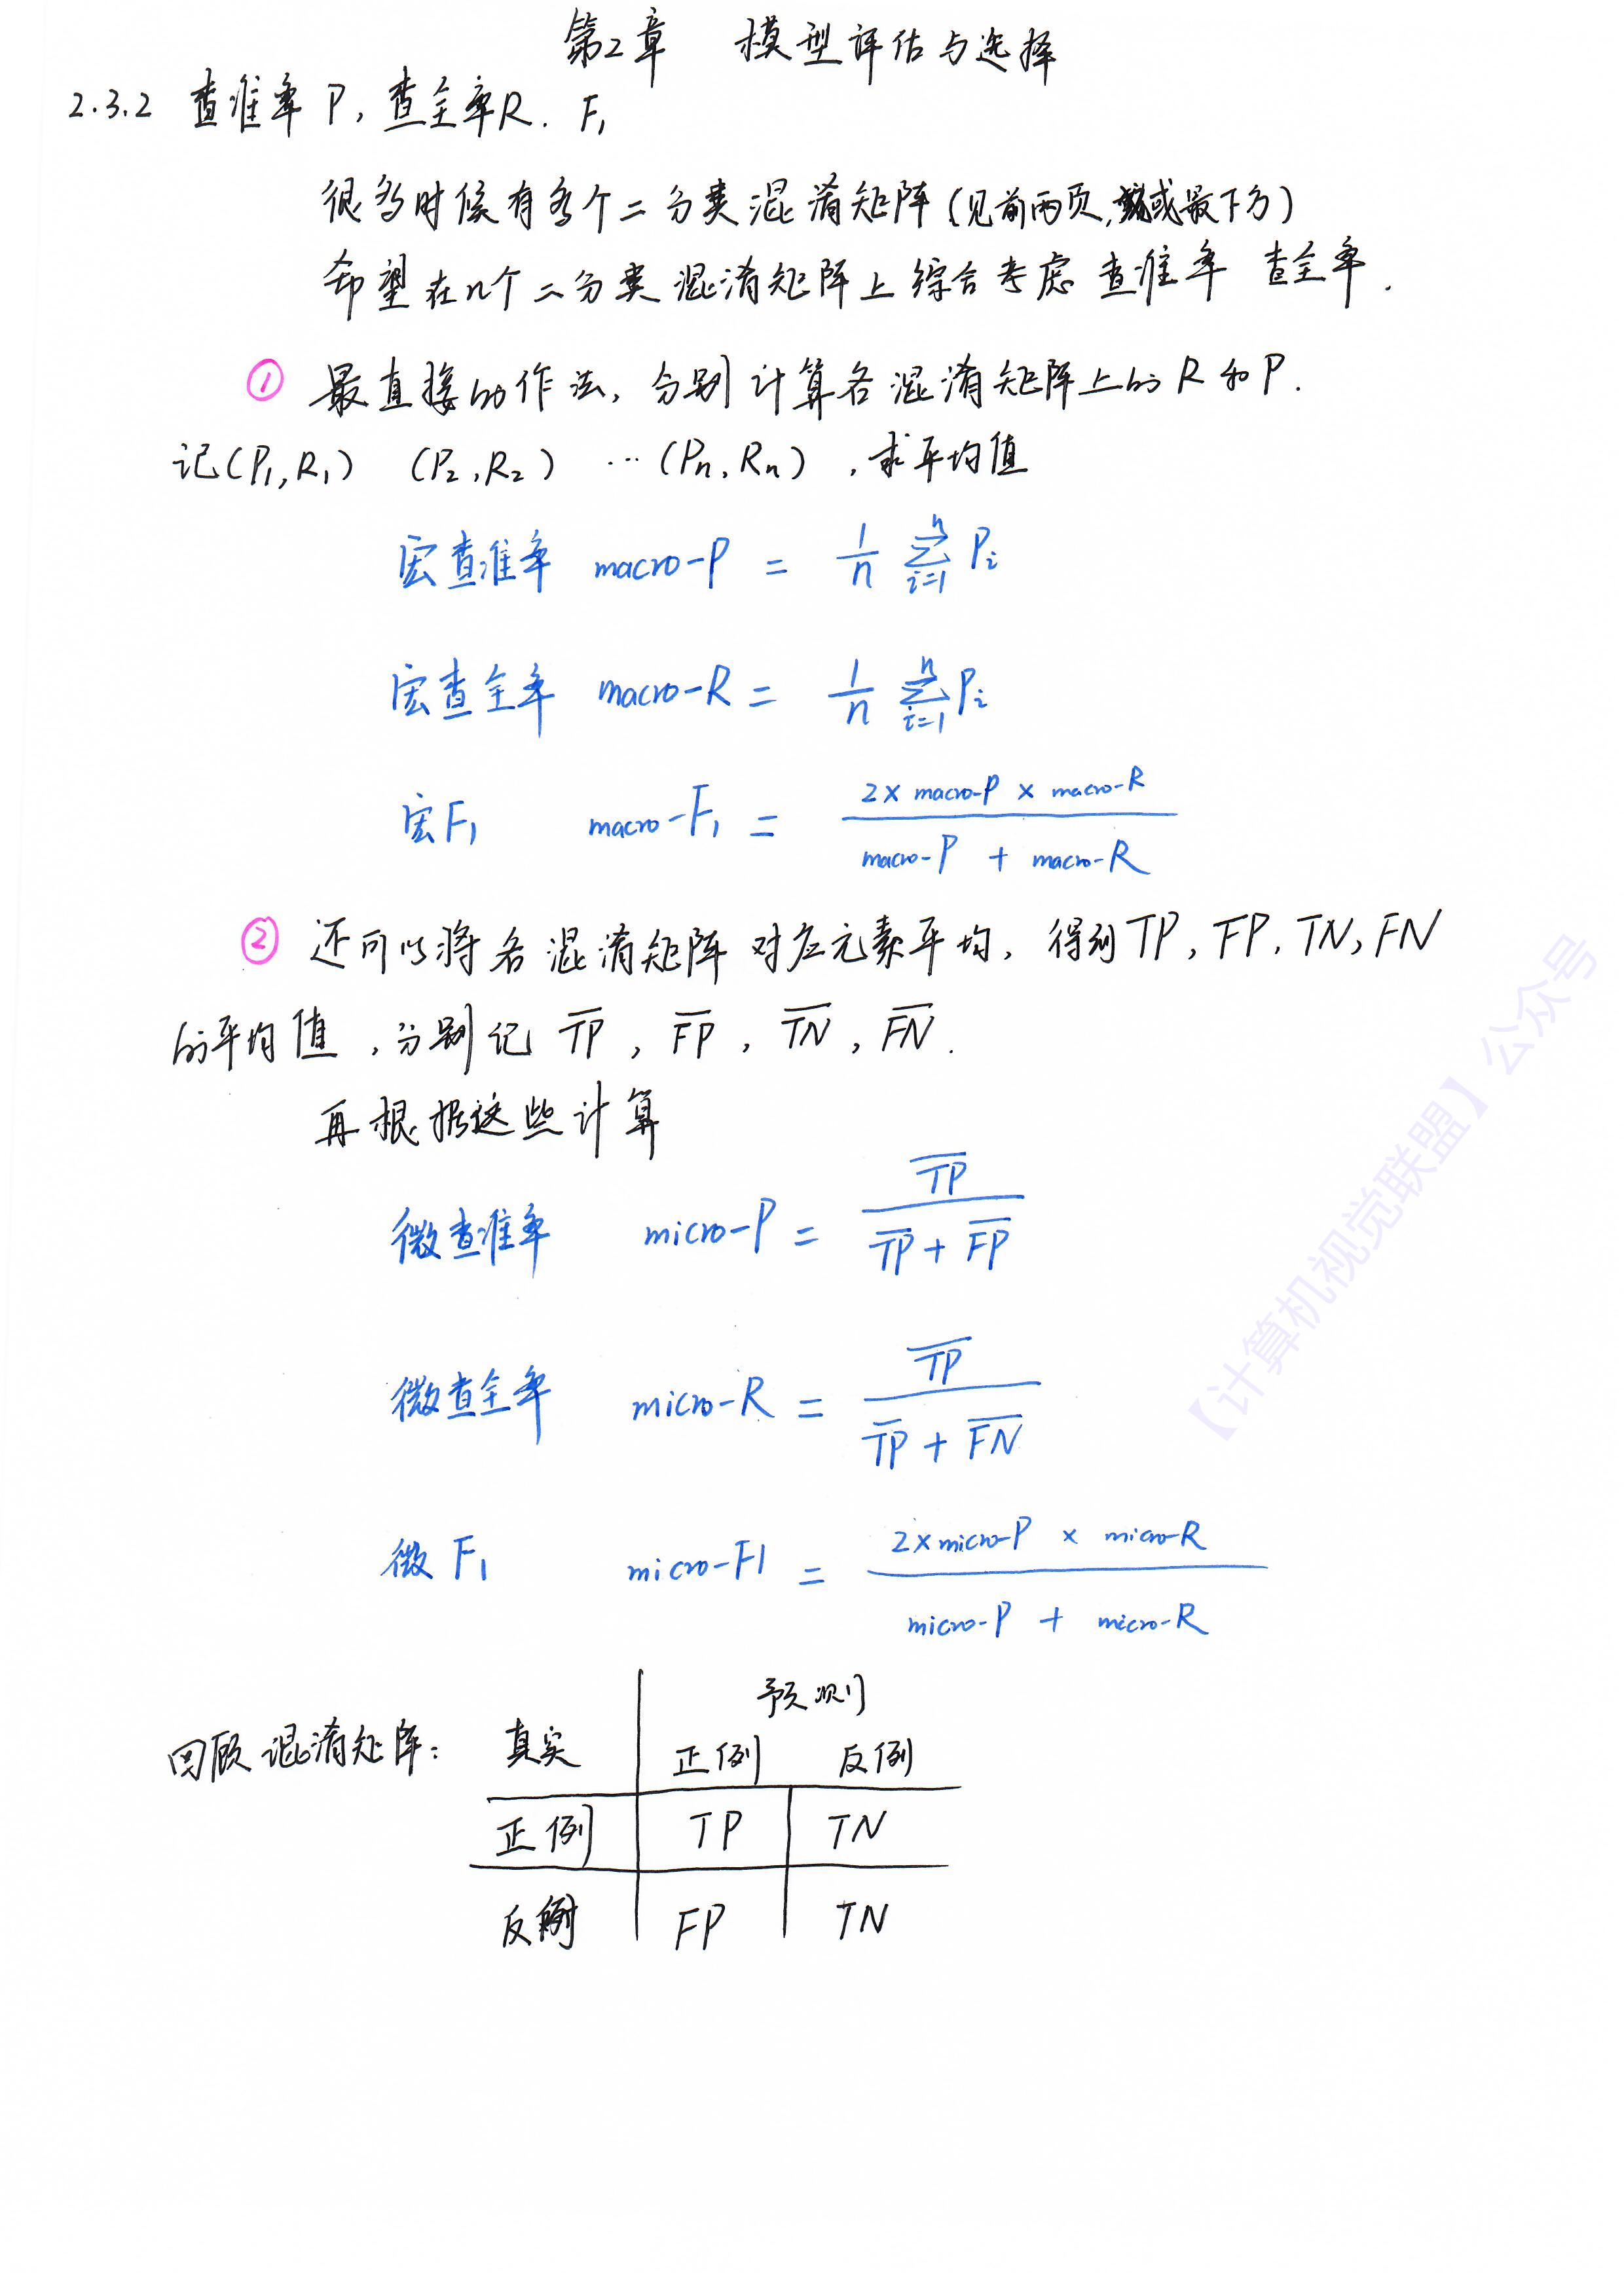 第2章 模型评估与选择
2.3.2 查准率P,查全率R. F₁
很多时候有多个二分类混淆矩阵(见前两页,或最下方)
希望在n个二分类混淆矩阵上综合考虑 查准率 查全率.
① 最直接的作法,分别计算各混淆矩阵上的R和P.
记(P₁,R₁) (P₂,R₂) …(Pₙ,Rₙ),求平均值
宏查准率 macro-P = 1/n ∑ᵢ₌₁ⁿ Pᵢ
宏查全率 macro-R = 1/n ∑ᵢ₌₁ⁿ Pᵢ
宏F₁ macro-F₁ = (2× macro-P × macro-R) / (macro-P + macro-R)
② 还可以将各混淆矩阵对应元素平均,得到TP,FP,TN,FN
的平均值,分别记 T̅P̅, F̅P̅, T̅N̅, F̅N̅.
再根据这些计算
微查准率 micro-P = T̅P̅ / (T̅P̅ + F̅P̅)
微查全率 micro-R = T̅P̅ / (T̅P̅ + F̅N̅)
微F₁ micro-F1 = (2×micro-P × micro-R) / (micro-P + micro-R)
预测
回顾混淆矩阵: 真实 正例 反例
正例 TP TN
反例 FP TN
【计算机视觉联盟】公众号